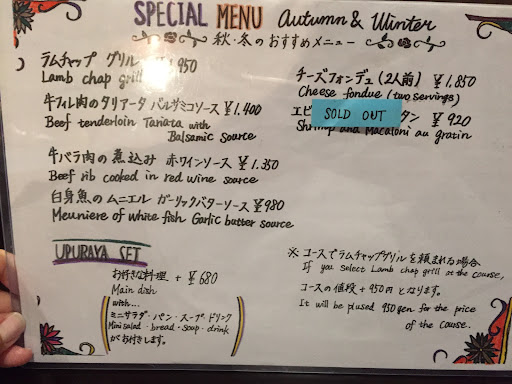 SPECIAL MENU Autumn & Winter
秋・冬のおすすめメニュー
ラムチャップ グリル
Lamb chap grill
牛フィレ肉のタリアータ バルサミコソース ¥1,400
Beef tenderloin Tariata with
Balsamic Source
牛バラ肉の煮込み 赤ワインソース ¥1,350
Beef rib cooked in red wine source
白身魚のムニエル ガーリックバターソース ¥980
Meuniere of white fish Garlic butter source
チーズフォンデュ (2人前) ¥1,850
Cheese fondue (two servings)
エビ
SOLD OUT
タン ¥920
Shrimp and Macaloni au gratin
UPURAYA SET
お好きな料理 + ¥680
Main dish
with...
ミニサラダ・パン・スープ・ドリンク
Mini salad・bread・soup・drink
がお付きします。
※ コースでラムチャップグリルを頼まれる場合
If you select Lamb chap grill at the course,
コースの値段 + 950円 となります。
It will be plused 950 yen for the price
of the course.